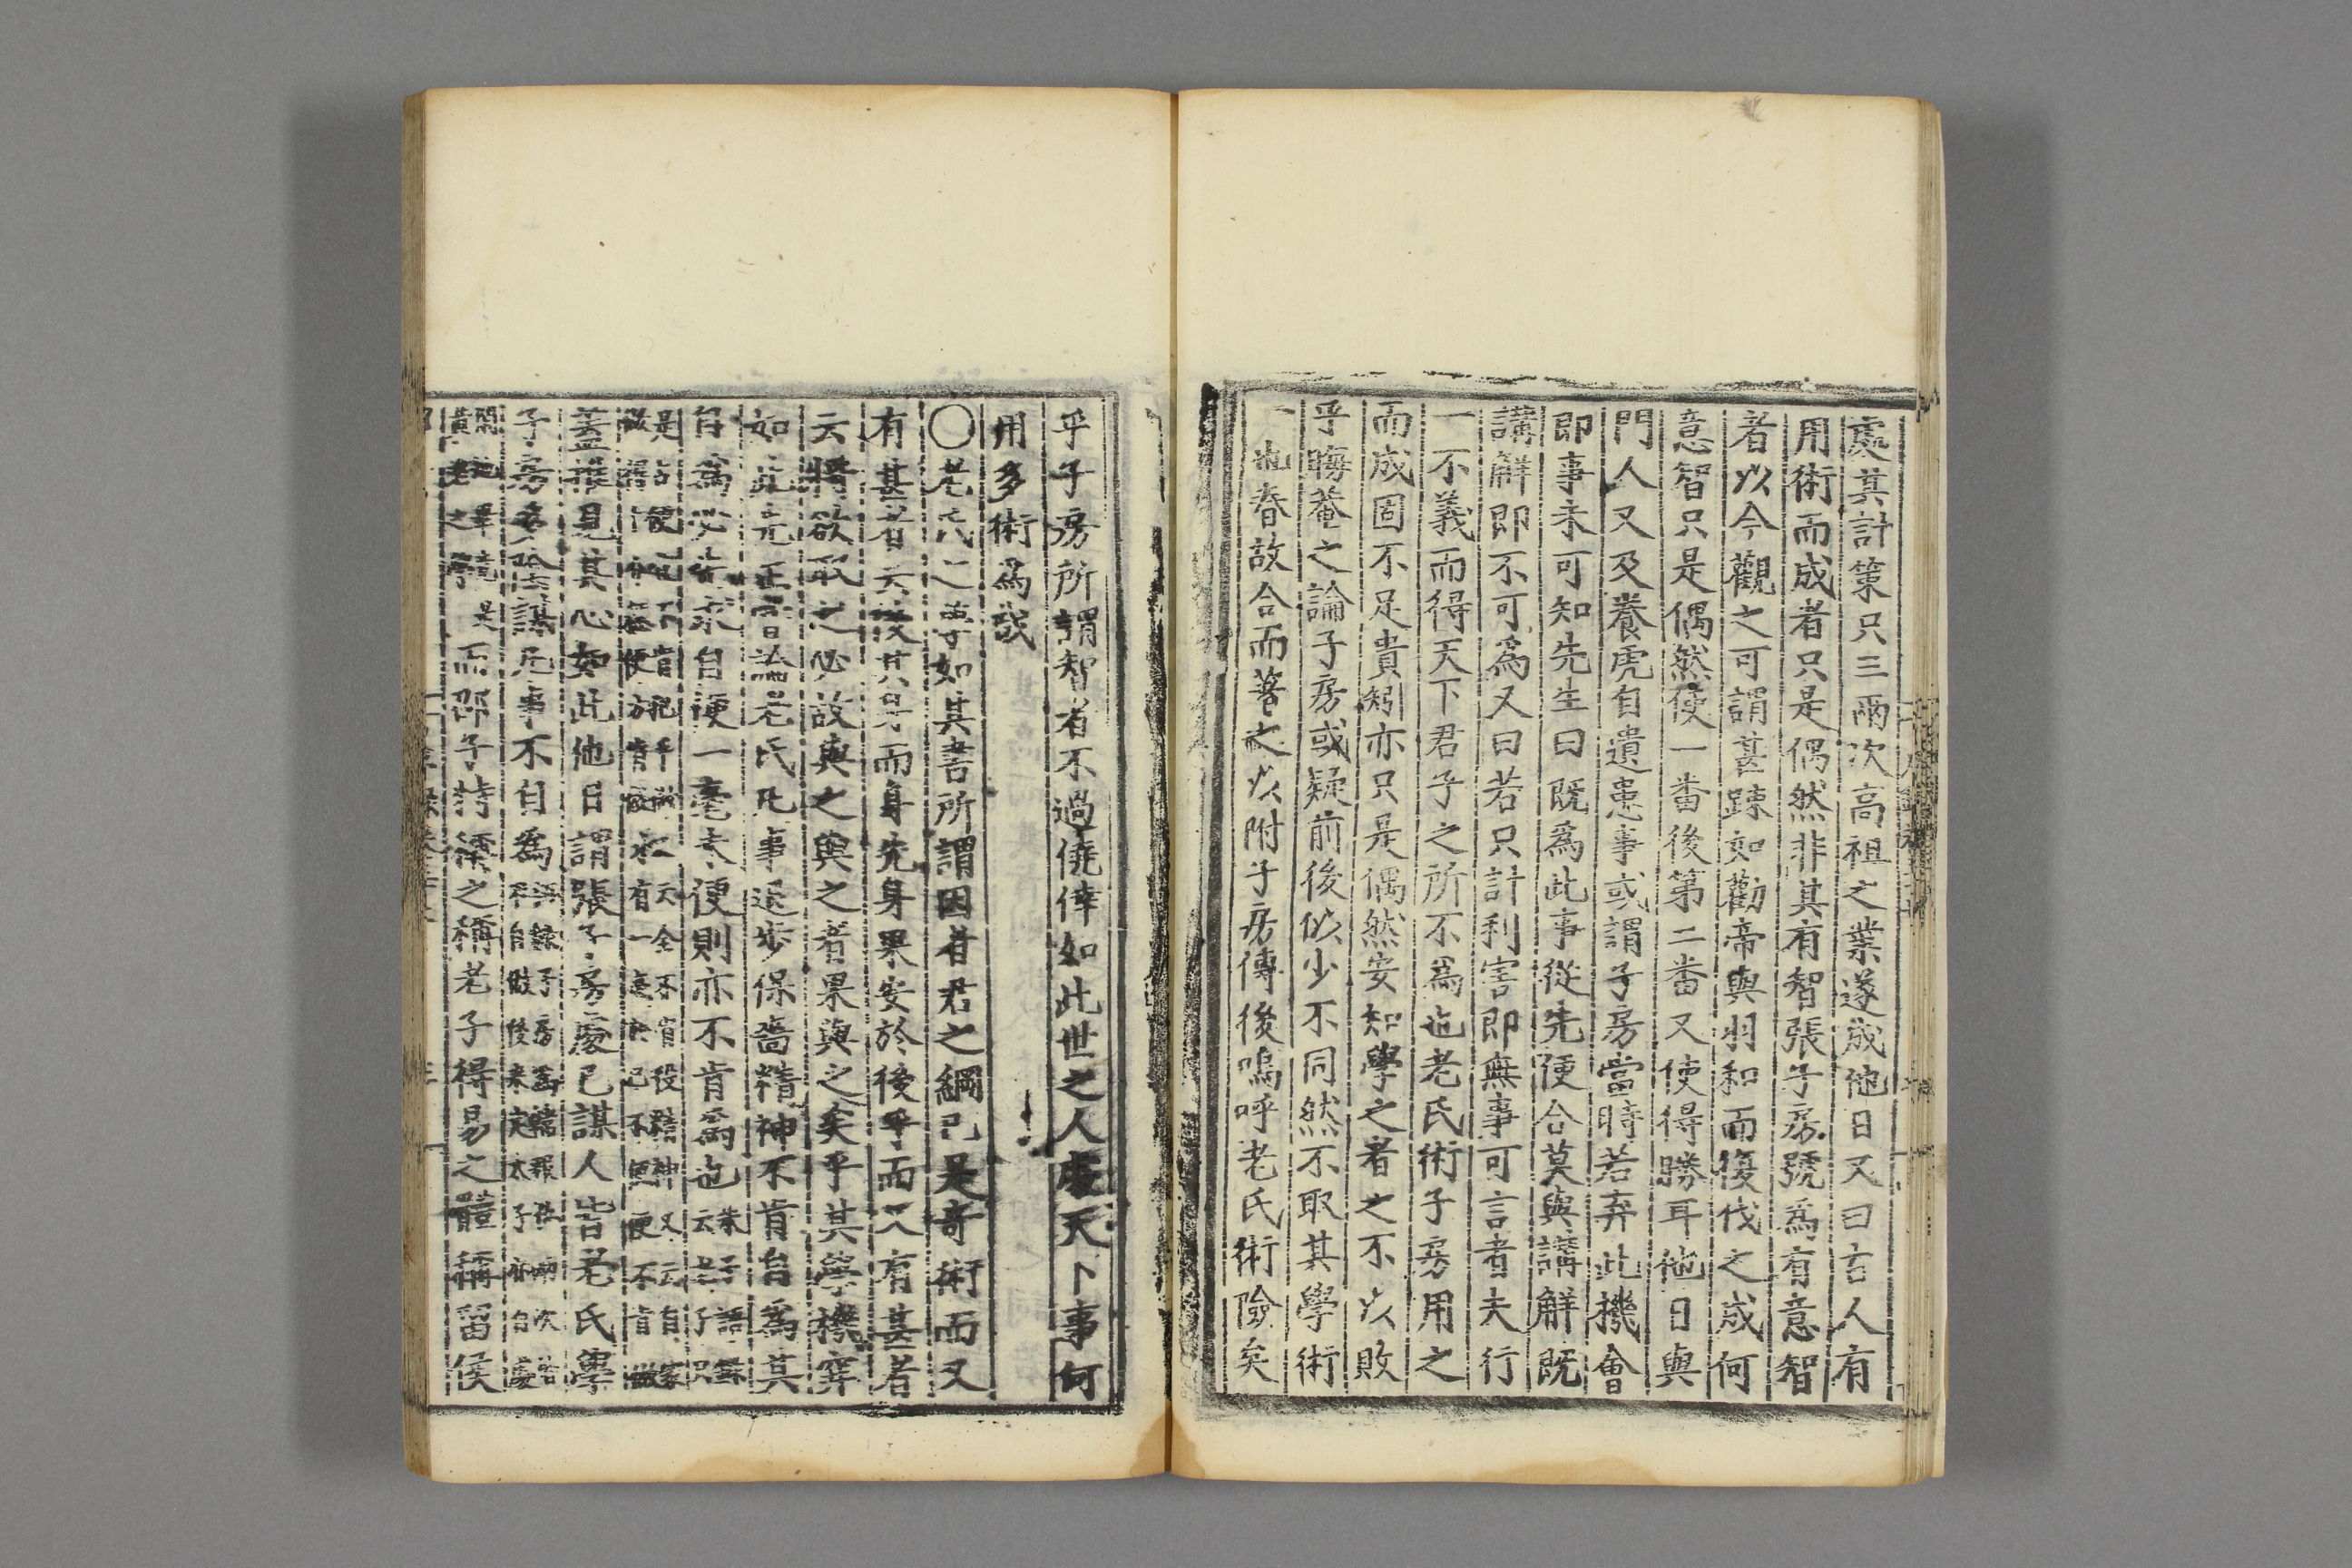 處其計策只三兩次高祖之業遂成他日又曰古人有
用術而成者只是偶然非其有智張子房號爲有意智
者以今觀之可謂甚疎如勸帝與羽和而復伐之成何
意智只是偶然使一番後第二番又使得勝耳他日與
門人又及養虎自遺患事或謂子房當時若弃此機會
即事未可知先生曰旣爲此事從先便合莫與講解旣
講解即不可爲又曰若只計利害即無事可言者夫行
一不義而得天下君子之所不爲也老氏術子房用之
而成固不足貴矧亦只是偶然安知學之者之不以敗
乎晦菴之論子房或疑前後似少不同然不取其學術
一也春故合而著之以附子房傳後嗚呼老氏術險矣
乎子房所謂智者不過僥倖如此世之人處天下事何
用多術爲哉
〇老氏之學如其書所謂因者君之綱已是奇術而又
有甚者云後其身而身先身果安於後乎而又有甚者
云將欲取之必故與之與之者果與之矣乎其學機穽
如此先正嘗論老氏凡事退步保嗇精神不肯自爲其
自爲必先求自便一毫未便則亦不肯爲也朱子語錄云老子只
是占便宜不肯把手做又云全不肯役精神又云自家
蓋推見其心如此他日謂張子房處己謀人皆老氏學
子房多陰謀凡事不自爲
黃老之學是而邵子特稱之稱老子得易之體稱留侯